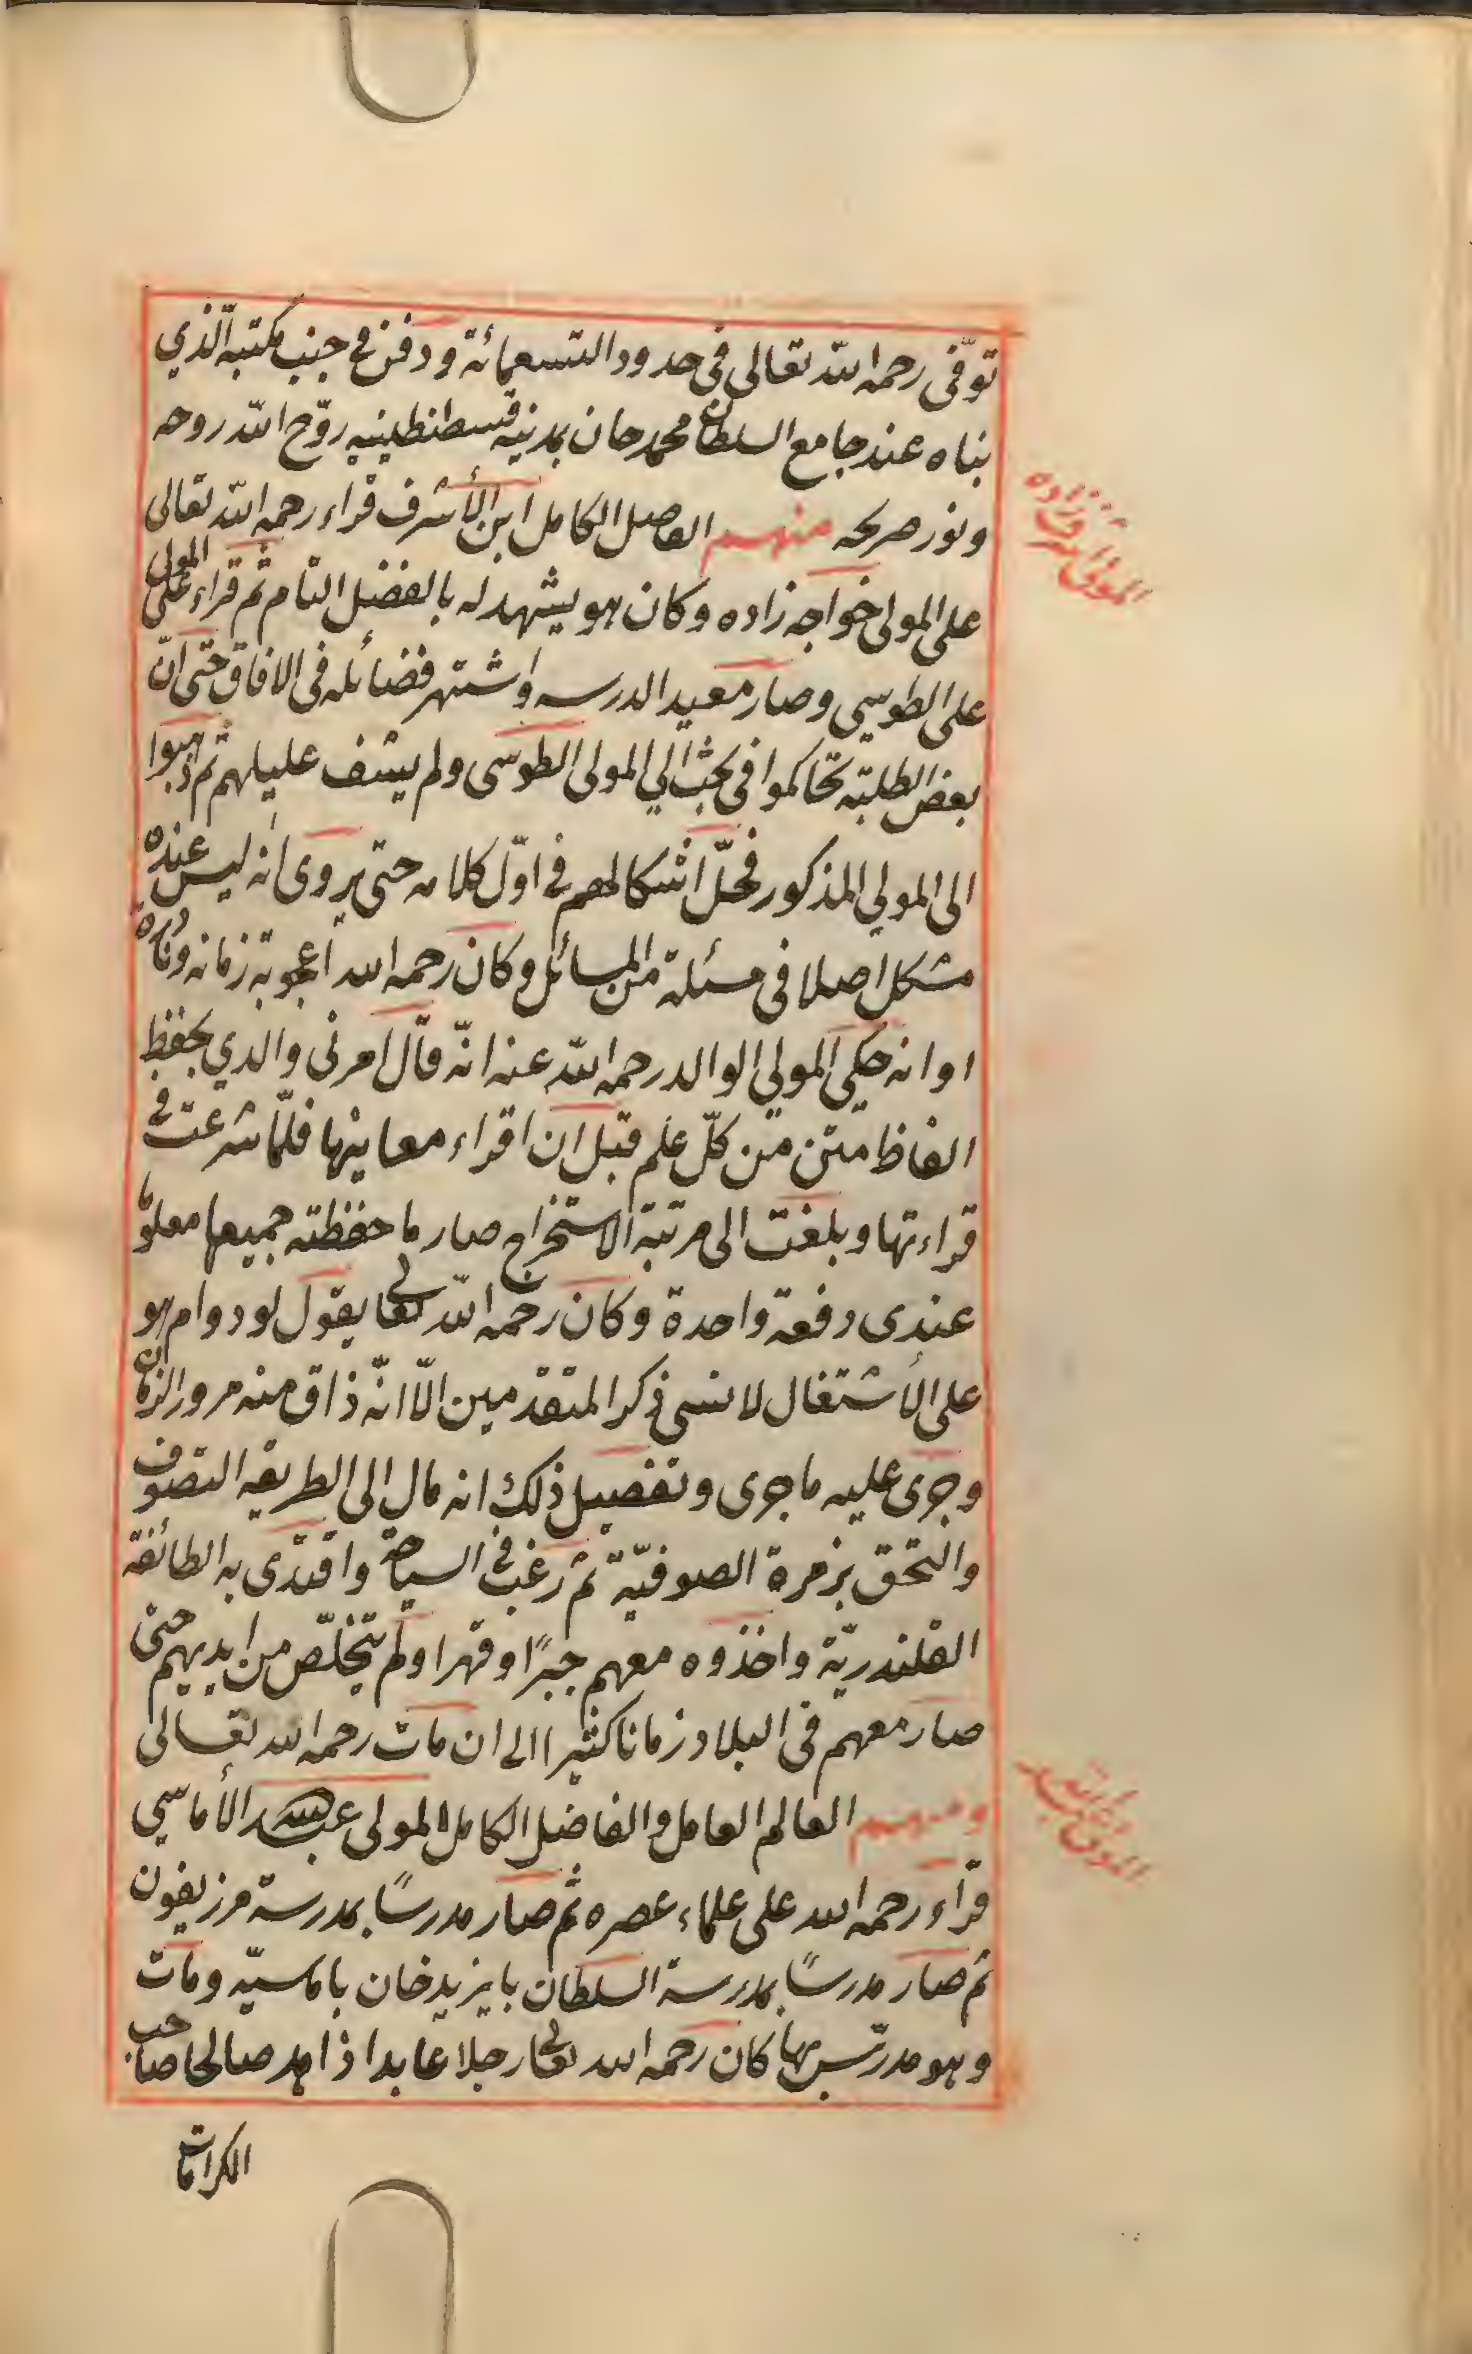 توفّى رحمه اللّه تعالى فى حدود التسعمائة ودفن فى جنب مكتبه الّذي
بناه عند جامع السلطان محمد خان بمدنية قسطنطينيه روّح اللّه روحه
ونور ضريحه منهم الفاضل الكامل ابن الأشرف قراء رحمه اللّه تعالى
على المولى خواجه زاده وكان هو يشهد له بالفضل التام ثم قراء على المولى
على الطوسي وصار معيد الدرسه واشتهر فضائله فى الافاق حتى انّ
بعض الطلبة تحاكموا فى بحث الي المولى الطوسى ولم يشف عليلهم ثم ذهبوا
الى المولي المذكور فحلّ اشكالهم فى اوّل كلامه حتى يروى انه ليس عنده
مشكل اصلا فى مسئلة من المسائل وكان رحمه الله اعجوبة زمانه ونادرة
اوانه حكى المولي الوالد رحمه اللّه عنه انّه قال امرنى والدي بحفظ
الفاظ متن متن كلّ علم قبل ان اقراء معانيها فلمّا شرعت فى
قراءتها وبلغت الى مرتبة الاستخراج صار ما حفظته جميعها معلوما
عندى دفعة واحدة وكان رحمه اللّه تعالى يقول لو دوام هو
على الأشتغال لانسى ذكر المتقدمين الّا انّه ذاق منه مرور الزمان
وجرى عليه ما جرى وتفصيل ذلك انه مال الى الطريقه التصوف
والتحق بزمرة الصوفيّة ثم رغب فى السياحة واقتدى به الطائفة
القلندريّة واخذوه معهم جبرًا وقهرا ولم يتخلّص من ايديهم حتى
صار معهم فى البلاد زمانا كثيرا الى ان مات رحمه الله تعالى
ومنهم العالم العامل والفاضل الكامل المولى عبد الله الأماسي
قرآء رحمه الله على علماء عصره ثم صار مدرسًا بمدرسة مرزيفون
ثم صار مدرسًا بمدرسة السلطان بايزيد خان باماسيّه ومات
وهو مدرّس بها كان رحمه الله تعالى رجلا عابدا ذاهد صالحا صاحب
الكرامات